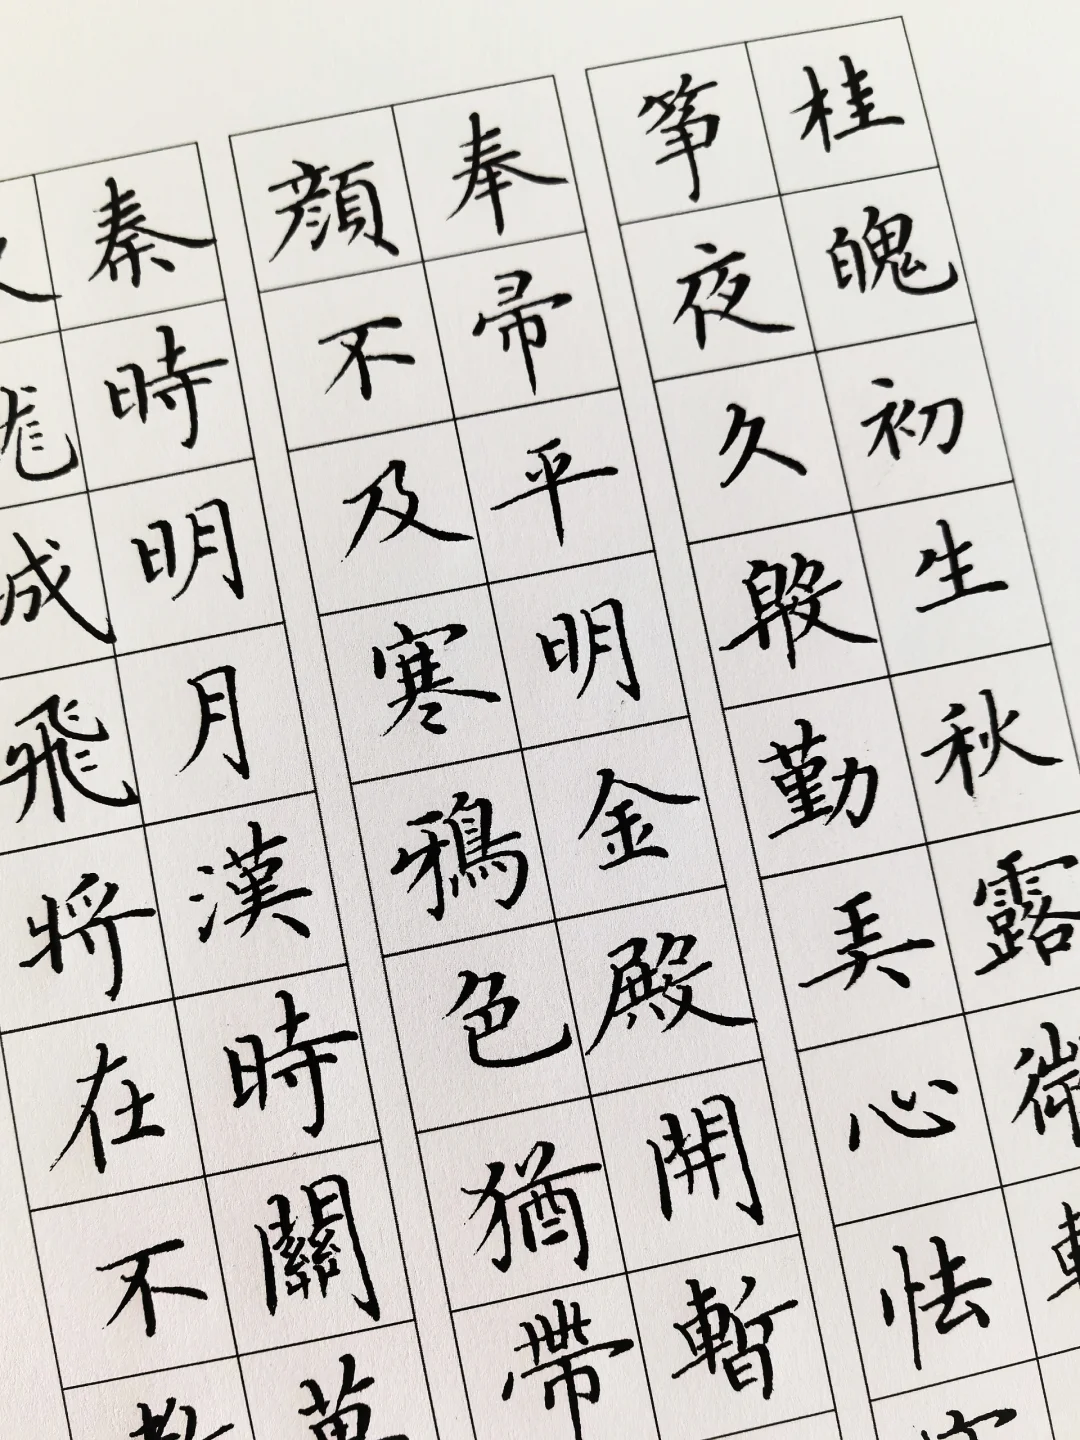 桂魄初生秋露微輕
筝夜久殷勤弄心怯空
奉帚平明金殿開暫
顔不及寒鴉色猶帶
秦時明月漢時關萬
將在不教
城飛